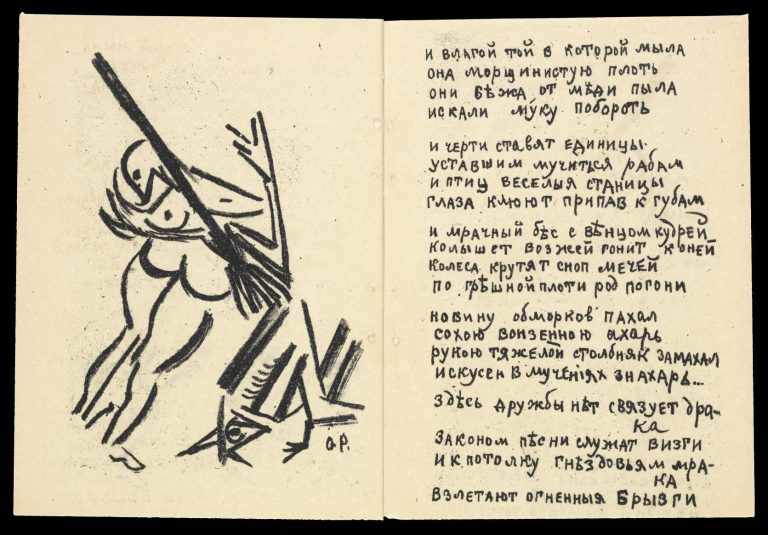 и влагой той в которой мыла
она морщинистую плоть
они бѣжа от мѣди пыла
искали муку побороть
и черти ставят единицы
уставшим мучиться рабам
и птиц веселыя станицы
глаза клюют припав к губам
и мрачный бѣс с вѣнцом кудрей
колышет возжей гонит коней
колеса крутят сноп мечей
по грѣшной плоти род погони
новину обмороков пахал
сохою вонзенною ахарь
рукою тяжелой столбняк замахал
искусен в мученіях знахарь...
здѣсь дружбы нѣт связует дра-
ка
законом пѣсни служат визги
и к потолку гнѣздовьям мра-
ка
взлетают огненныя брызги
О.Р.